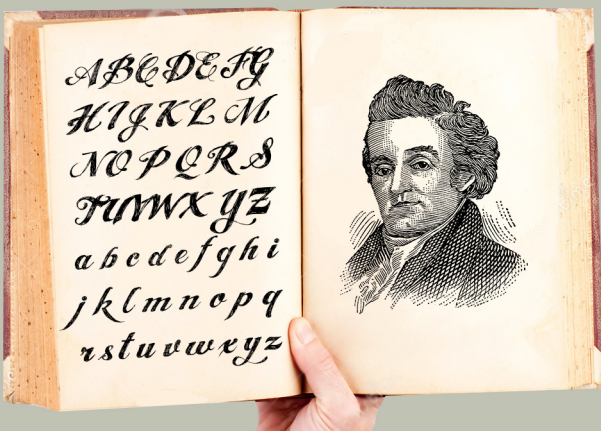 ABCDEFG
HIJKLM
NOPQRS
TUVWXYZ
abcdefghi
jklmnopq
rstuvwxyz